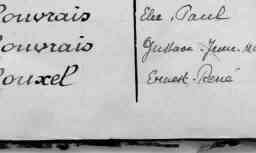 ouvrais Elie, Paul
ouvrais Gustave-Jean-M
ouxel Ernest-René